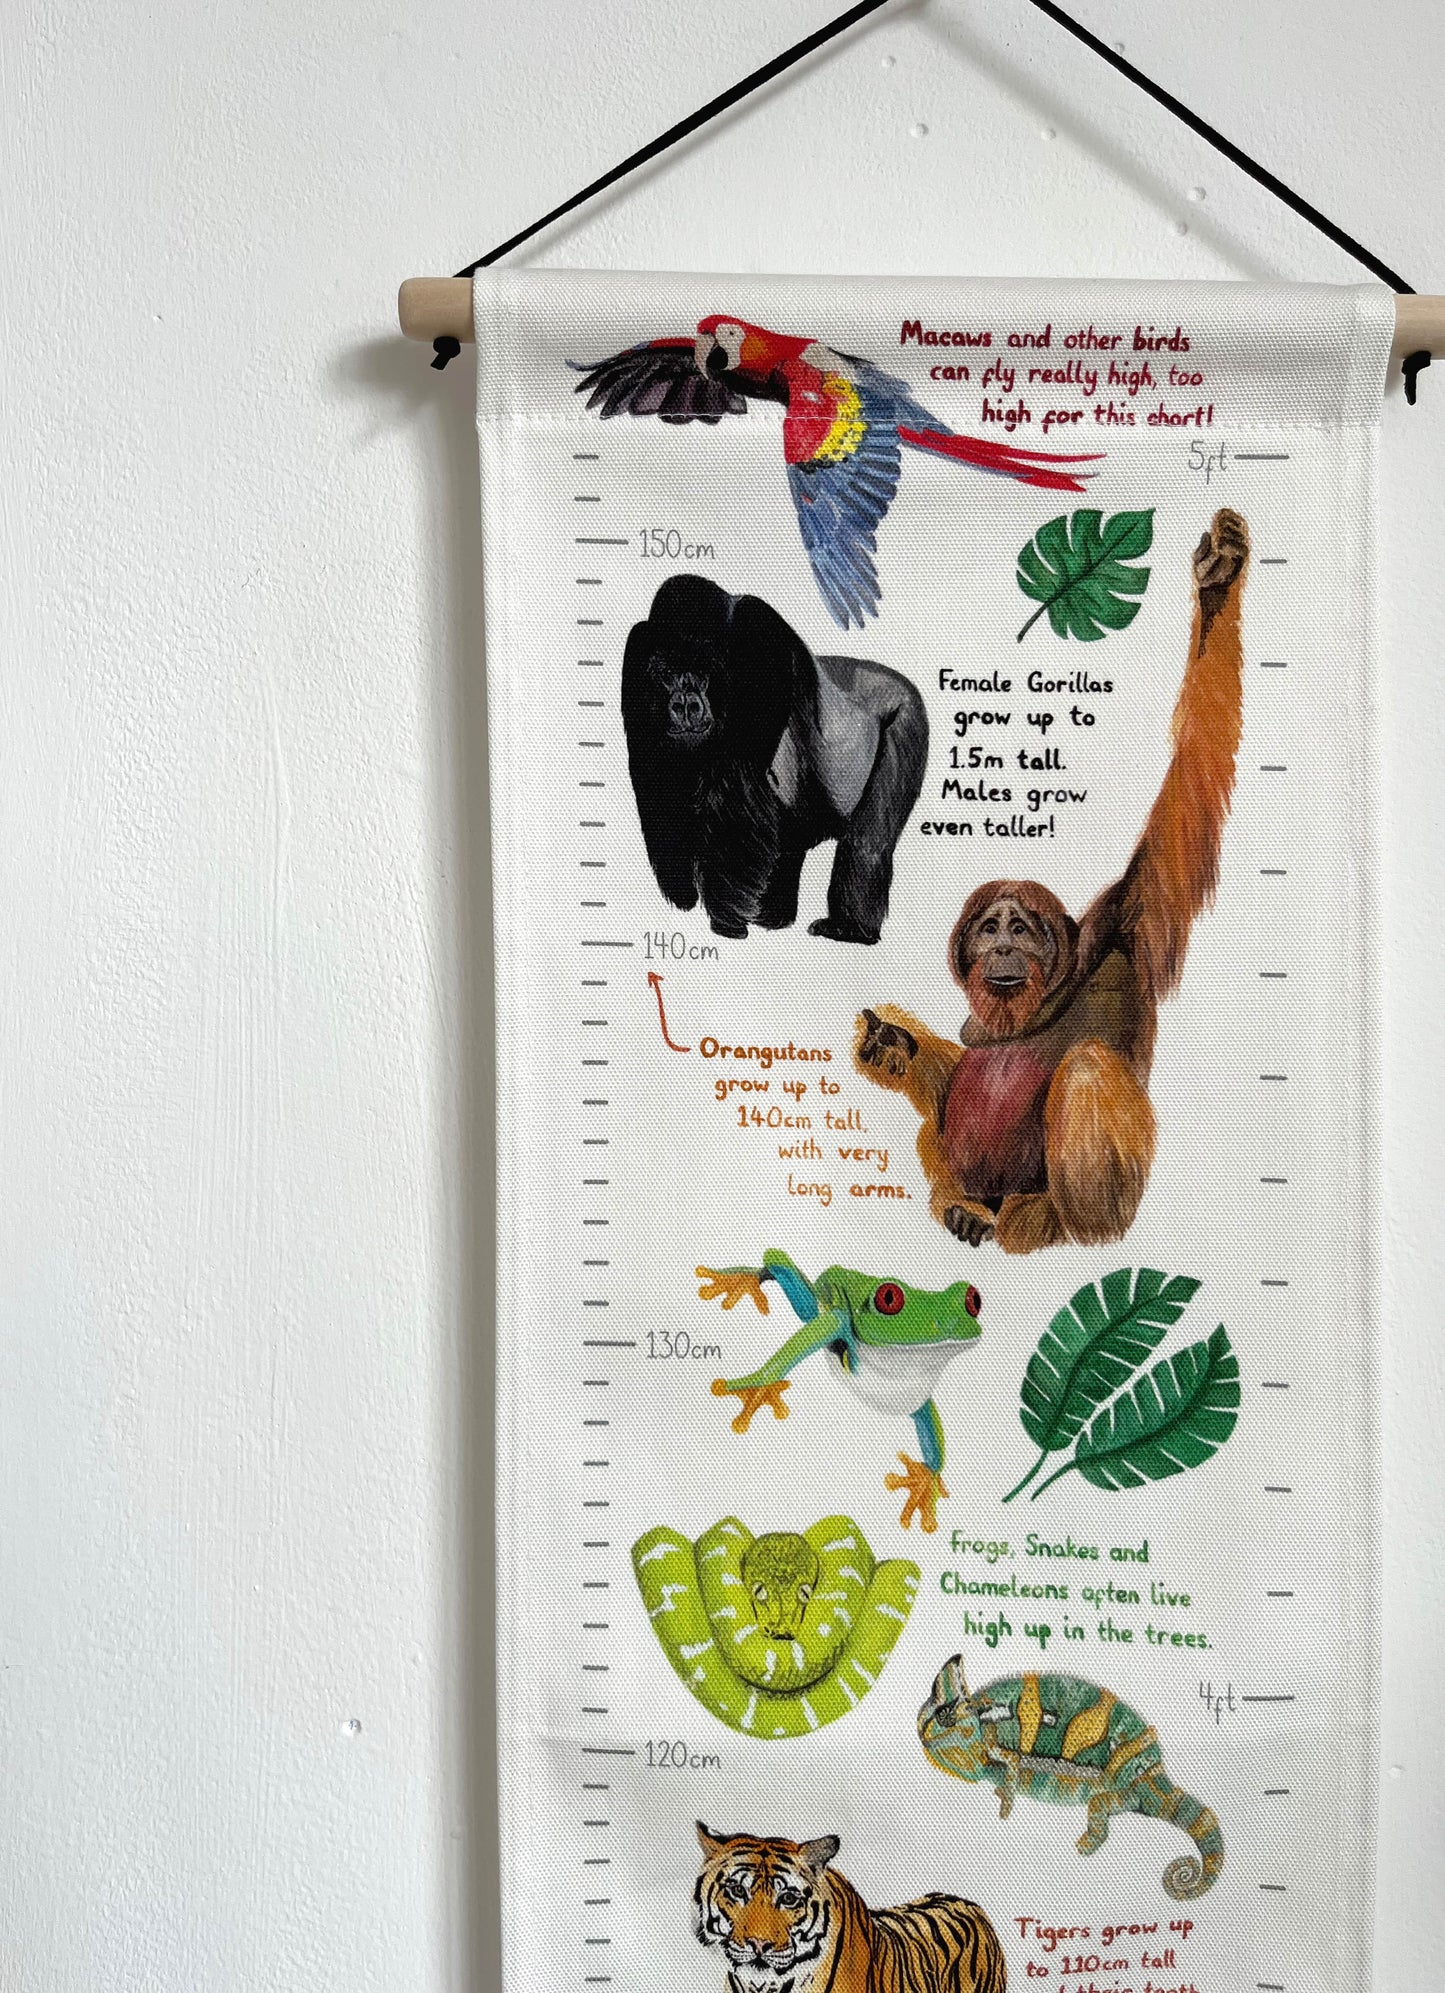 Macaws and other birds
can fly really high, too
high for this chart!
5ft
150cm
Female Gorillas
grow up to
1.5m tall.
Males grow
even taller!
140cm
Orangutans
grow up to
140cm tall,
with very
long arms.
130cm
Frogs, Snakes and
Chameleons often live
high up in the trees.
4ft
120cm
Tigers grow up
to 110cm tall
their teeth